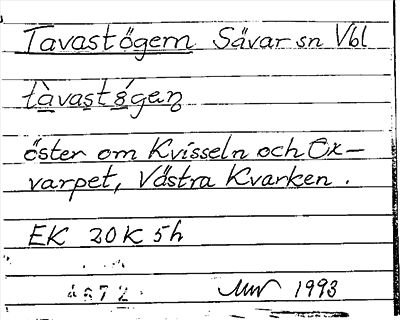 Tavastögem Sävar sn Vbl
tàvastǿgen̥
öster om Kvisseln och Ox-
varpet, Västra Kvarken.
EK 20K 5h
1993